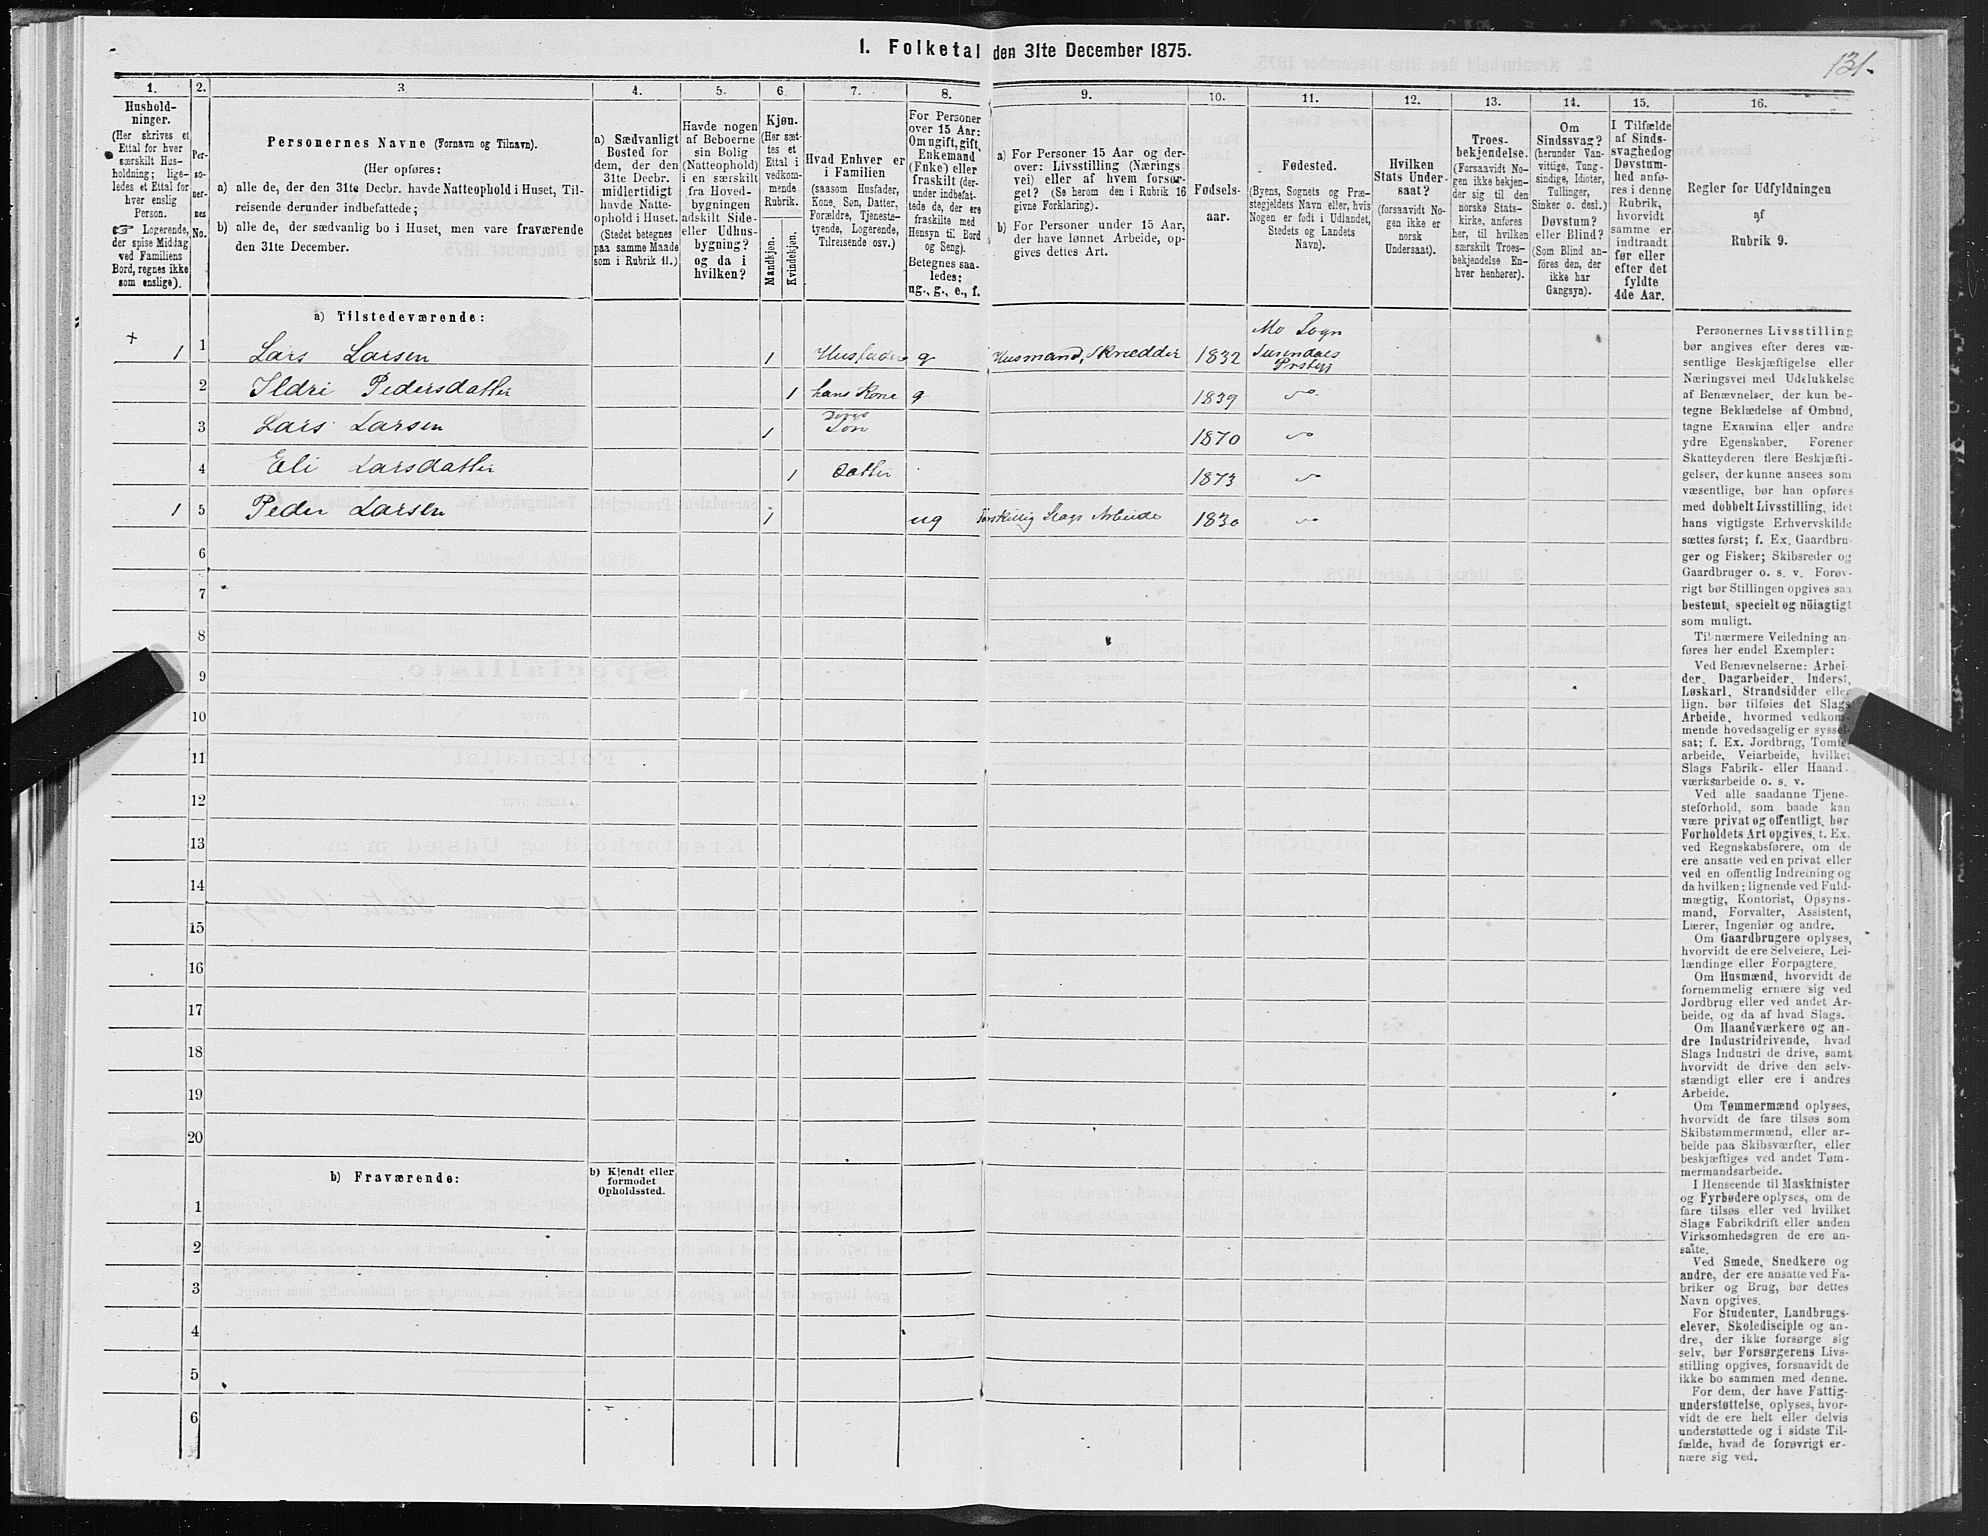 1. Folketal den 31te December 1875.
131.
1.
Hushold-
ninger.
(Her skrives et
Ettal for hver
særskilt Hus-
holdning; lige-
ledes et Ettal for
hver enslig
Person.
☞ Logerende,
der spise Middag
ved Familiens
Bord, regnes ikke
som enslige).
2.
Per-
so-
ner-
nes
No.
3.
Personernes Navne (Fornavn og Tilnavn).
(Her opføres:
a) alle de, der den 31te Decbr. havde Natteophold i Huset, Til-
reisende derunder indbefattede;
b) alle de, der sædvanlig bo i Huset, men vare fraværende
den 31te December.
4.
a) Sædvanligt
Bosted for
dem, der den
31te Decbr.
midlertidigt
havde Natte-
ophold i Huset.
(Stedet betegnes
paa samme Maade
som i Rubrik 11.)
5.
Havde nogen
af Beboerne
sin Bolig
(Natteophold)
i en særskilt
fra Hoved-
bygningen
adskilt Side-
eller Udhus-
bygning?
og da i
hvilken?
6.
Kjøn.
(Her sæt-
tes et
Ettal i
vedkom-
mende
Rubrik.
Mandkjøn.
Kvindekjøn.
7.
Hvad Enhver er
i Familien
(saasom Husfader,
Kone, Søn, Datter,
Forældre, Tjeneste-
tyende, Logerende,
Tilreisende osv.)
8.
For Personer
over 15 Aar:
Om ugift, gift,
Enkemand
(Enke) eller
fraskilt (der-
under indbefat-
tede de, der ere
fraskilte med
Hensyn til Bord
og Seng).
Betegnes saa-
ledes:
ug., g., e., f.
9.
a) For Personer 15 Aar og der-
over: Livsstilling (Nærings-
vei) eller af hvem forsør-
get? (Se herom den i Rubrik 16
givne Forklaring).
b) For Personer under 15 Aar,
der have lønnet Arbeide, op-
gives dettes Art.
10.
Fødsels-
aar.
11.
Fødested.
(Byens, Sognets og Præ-
stegjeldets Navn eller, hvis
Nogen er født i Udlandet,
Stedets og Landets
Navn).
12.
Hvilken
Stats Under-
saat?
(forsaavidt No-
gen ikke er
norsk
Undersaat).
13.
Troes-
bekjendelse.
(Forsaavidt No-
gen ikke bekjen-
der sig til den
norske Stats-
kirke, anføres
her, til hvilken
særskilt Troes-
bekjendelse En-
hver henhører).
14.
Om
Sindssvag?
(herunder Van-
vittige, Tung-
sindige, Idioter,
Tullinger,
Sinker o. desl.)
Døvstum?
eller Blind?
(Som Blind an-
føres den, der
ikke har
Gangsyn).
15.
I Tilfælde
af Sinds-
svaghed og
Døvstum-
hed anfø-
res i denne
Rubrik,
hvorvidt
samme er
indtraadt
før eller
efter det
fyldte
4de Aar.
16.
Regler for Udfyldningen
af
Rubrik 9.
a) Tilstedeværende:
Mo Sogn
+ 1 1 Lars Larsen 1 Husfader g Husmand, Skrædder 1832 Surendals
Prstegj
2 Ildri Pedersdatter 1 hans Kone g 1839 "
3 Lars Larsen 1 Deres Søn 1870 "
4 Eli Larsdatter 1 Datter 1873 "
1 5 Peder Larsen 1 ug Forskjellig Slags Arbeide 1830 "
6
7
8
9
10
11
12
13
14
15
16
17
18
19
20
b) Fraværende:
b) Kjendt eller
formodet
Opholdssted.
1
2
3
4
5
6
Personernes Livsstilling
bør angives efter deres væ-
sentlige Beskjæftigelse eller
Næringsvei med Udelukkelse
af Benævnelser, der kun be-
tegne Beklædelse af Ombud,
tagne Examina eller andre
ydre Egenskaber. Forener
Skatteyderen flere Beskjæfti-
gelser, der kunne ansees som
væsentlige, bør han opføres
med dobbelt Livsstilling, idet
hans vigtigste Erhvervskilde
sættes først; f. Ex. Gaardbru-
ger og Fisker; Skibsreder og
Gaardbruger o. s. v. Forøv-
rigt bør Stillingen opgives saa
bestemt, specielt og nöiagtigt
som muligt.
Til nærmere Veiledning an-
føres her endel Exempler:
Ved Benævnelserne: Arbei-
der, Dagarbeider, Inderst,
Løskarl, Strandsidder eller
lign. bør tilføies det Slags
Arbeide, hvormed vedkom-
mende hovedsagelig er syssel-
sat; f. Ex. Jordbrug, Tomte-
arbeide, Veiarbeide, hvilket
Slags Fabrik- eller Haand-
værksarbeide o. s. v.
Ved alle saadanne Tjene-
steforhold, som baade kan
være privat og offentligt, bør
Forholdets Art opgives, t. Ex.
ved Regnskabsførere, om de
ere ansatte ved en privat eller
ved en offentlig Indretning og
da hvilken; lignende ved Fuld-
mægtig, Kontorist, Opsyns-
mand, Forvalter, Assistent,
Lærer, Ingeniør og andre.
Om Gaardbrugere oplyses,
hvorvidt de ere Selveiere, Lei-
lændinge eller Forpagtere.
Om Husmænd, hvorvidt de
fornemmelig ernære sig ved
Jordbrug eller ved andet Ar-
beide, og da af hvad Slags.
Om Haandværkere og an-
dre Industridrivende, hvad
Slags Industri de drive, samt
hvorvidt de drive den selv-
stændigt eller ere i andres
Arbeide.
Om Tømmermænd oplyses,
hvorvidt de fare tilsøs som
Skibstømmermænd, eller ar-
beide paa Skibsværfter, eller
beskjæftiges ved andet Tøm-
mermandsarbeide.
I Henseende til Maskinister
og Fyrbødere oplyses, om de
fare tilsøs eller ved hvilket
Slags Fabrikdrift eller anden
Virksomhedsgren de ere an-
satte.
Ved Smede, Snedkere og
andre, der ere ansatte ved Fa-
briker og Brug, bør dettes
Navn opgives.
For Studenter, Landbrugs-
elever, Skoledisciple og an-
dre, der ikke forsørge sig
selv, bør Forsørgerens Livs-
stilling opgives, forsaavidt de
ikke bo sammen med denne.
For dem, der have Fattig-
understøttelse, oplyses, hvor-
vidt de ere helt eller delvis
understøttede og i sidste Til-
fælde, hvad de forøvrigt er-
nære sig ved.